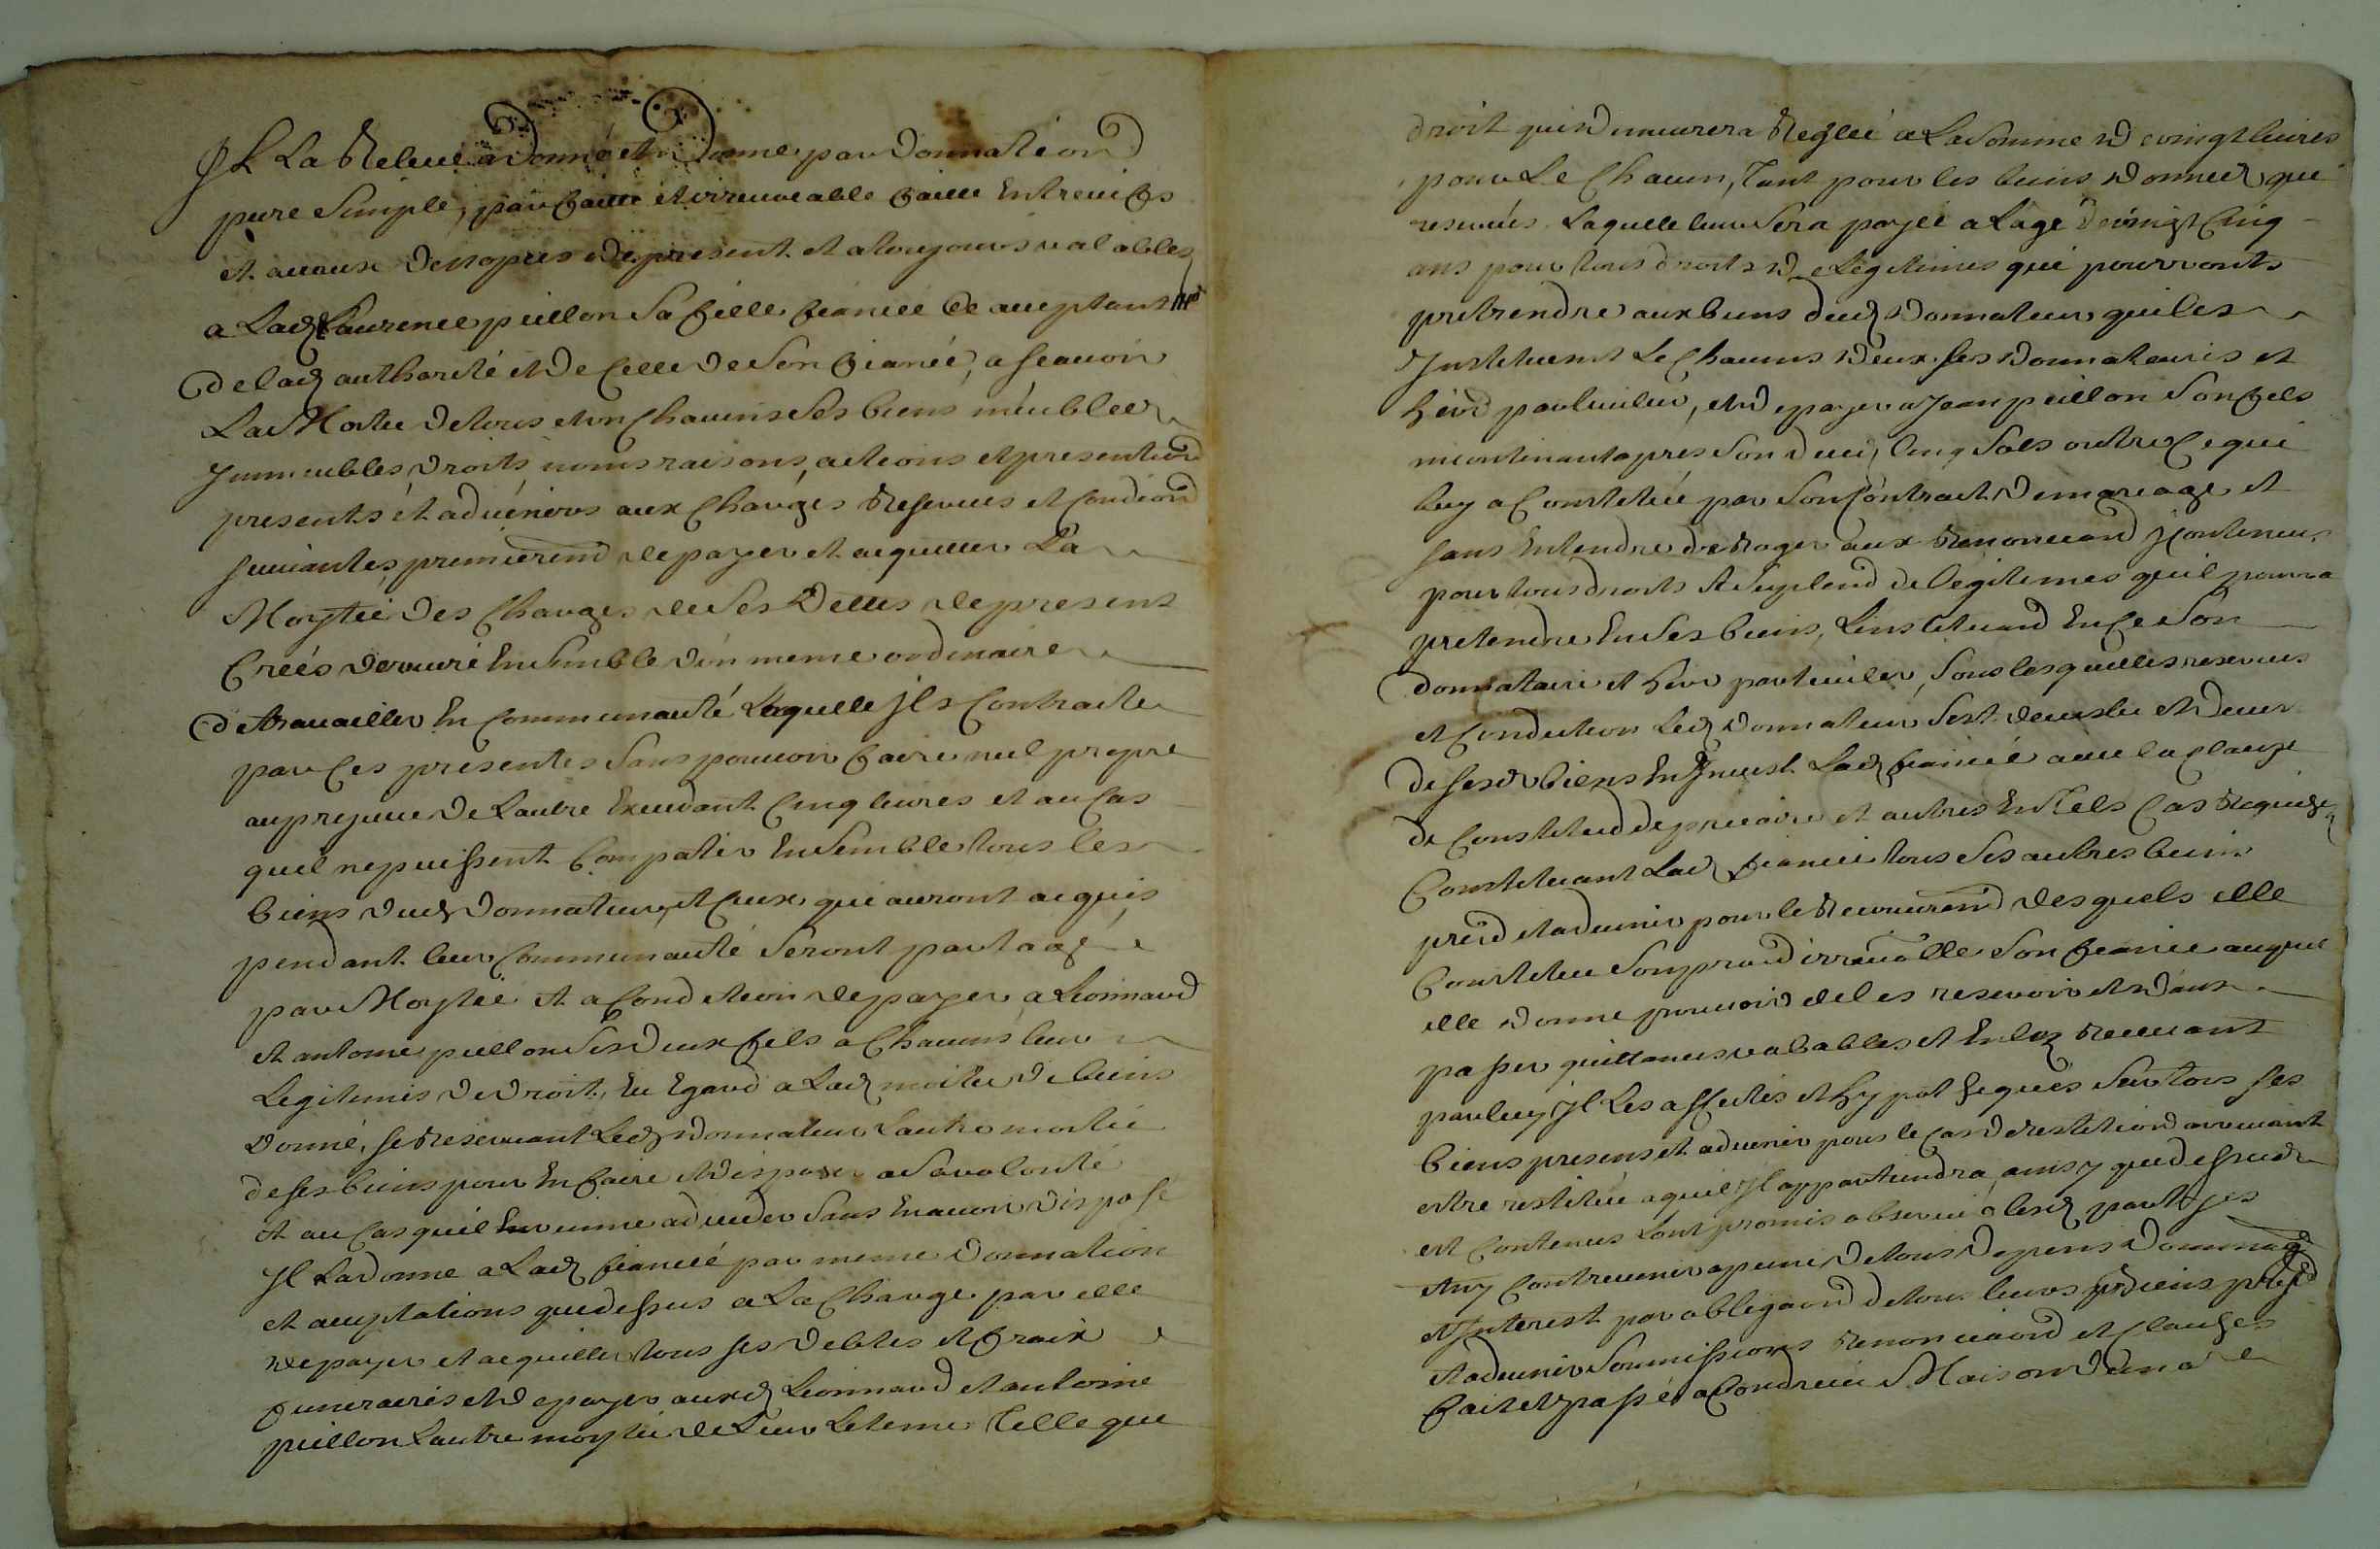 Il La Releve a donné et donne par donnation
pure Simple, parfaitte et irrevocable faitte Entreuifs
et a cause de nopces de present et a toujours valables
a Lad Laurence pullon Sa fille fiancée Ce acceptant
de lad authorité et de Celle de Son fiancé, a scauoir
La Moitié de tous et un Chacuns Ses biens meubles
Immeubles, droits, noms raisons, actions et pretention
presents et aduenirs aux Charges Reserues et Condiond
suiuantes, premierem de payer et acquiter La
Moytié des Charges de Ses Dettes de present
Creés de viure Ensemble d'un meme ordinaire
de trauailler En Communauté Laquelle Jls Contracte
par Ces presentes Sans pouuoir faire nul propre
au prejudice de L'autre Excedant Cinq liures et au Cas
quil ne puissent Compatir Ensemble tous les
biens dud donnateur, et Ceux qui auront acquis
pendant leur Communauté Seront partagé
par Moytié et a Condition de payer a Leonnard
et antoine pullon Ses deux fils a Chacuns leur
Legitimes de droit, Eu Egard a Lad moitié de biens
donné, se Reseruant Led donnateur L'autre moitié
de ses biens pour En faire et disposer a Sa volonté
et au Cas quil vienne a deceder Sans En auoir disposé
Jl La donne a Lad fiancée par meme donnation
et acceptations que dessus a La Charge par elle
de payer et acquitter tous ses debtes et fraix
funeraires et de payer auxd Leonnard et antoine
pullon L'autre moytié de Leur Letime Telle que
droit qui demeurera Reglée a La Somme de vingt liures
pour Le Chacun, Tant pour les biens donnés que
reserués Laquelle leur Sera payée a L'age de vingt Cinq
ans pour tous droits de Legitimes qui pourronts
pretendre aux biens dud donnateur qui les
Instituent Le Chacuns d'eux ses donnataires et
herd particulier, et de payer a Jean pullon Son fils
incontinant apres Son deces Cinq Sols outre Ce qui
luy a Constitué par Son Contract de mariage et
sans Entendre deroger aux Renonciaond y Contenues
pour tous droits et Suplemd de legitimes quil pourra
pretendre En Ses biens, L'instituand En Ce Son
donnataire et herd particulier, Sous lesquelles reserues
et Condition Led donnateur S'est deuestu et deuet
de sesd biens En Jnuest Lad fiancée auec la clause
de Constitud de precaire et autres En Tels Cas Requise
Constituant Lad fiancée tous Ses autres biens
pred et aduenir pour le Recouurem desquels elle
Constitue Son procud irreuoble Son fiancé auquel
elle donne pouuoir de les reseuoir et d'eux
passer quittances valables et En les Receuant
par luy Jl Les affectés et hypothequés Sur tous ses
biens presens et aduenir pour le Cas de restitiond arriuant
estre restitué a qui Jl appartiendra, ainsy que dessus
est Contenus L'ont promis obserué lesd parties
et n'y Contreuenir a peine de tous depens dommag
et Jnterest par obligaond de tous leurs biens pred
et aduenir Soumissions Renonciaond et Clauses
fait et passé a Condrieu Maison